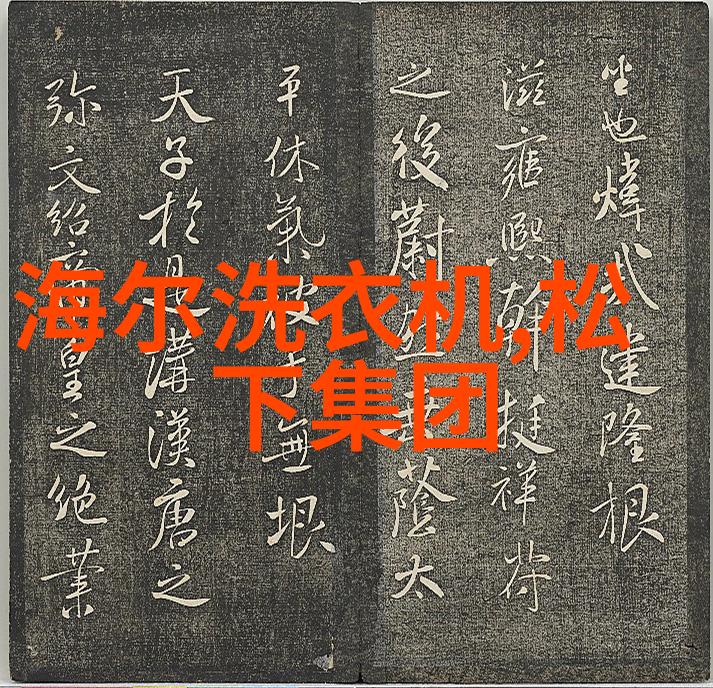 海尔洗衣机,松
下集团
也煒建隆根
滋雍熙幹挺祥符
之後蔚並垂蔭太
平休氣被于無垠
天子於是講漢唐之
弥文紹皇之絶業